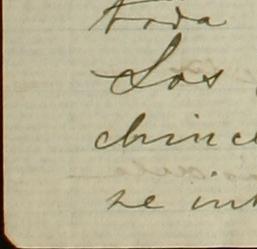 toda
Los
chince
se int